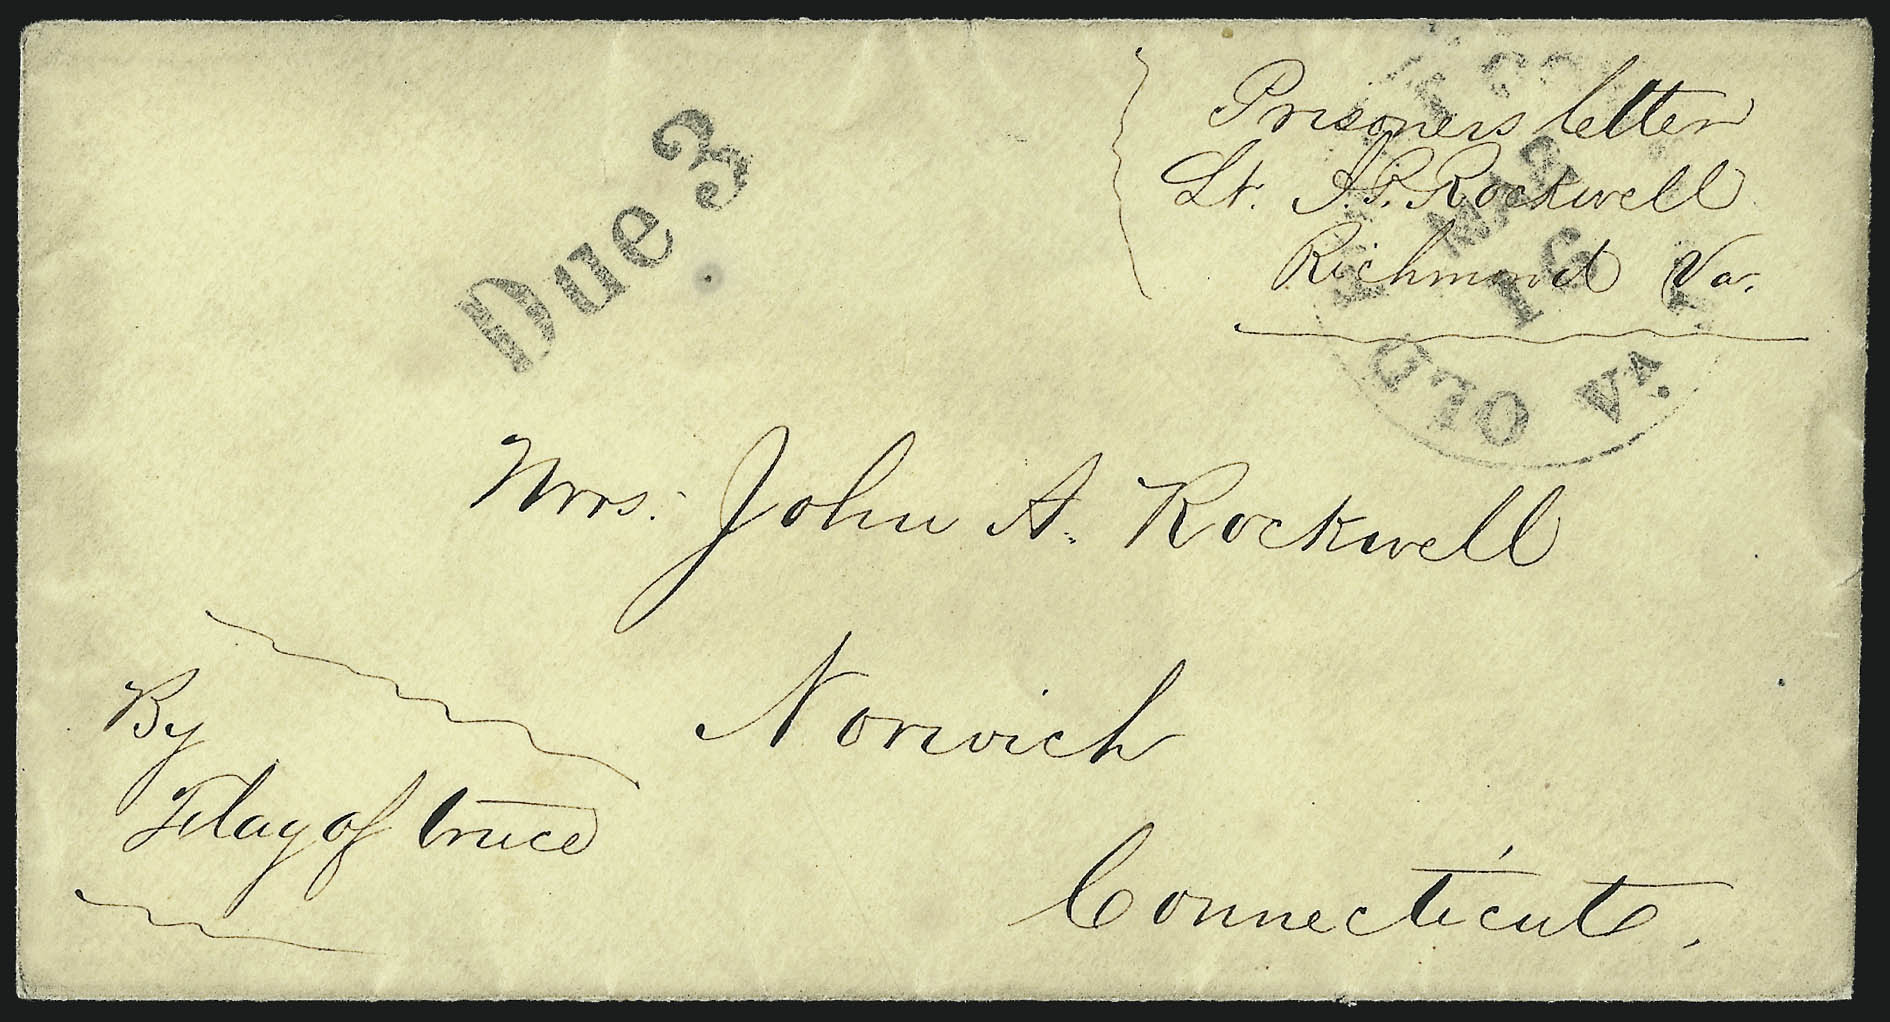 Due 3
Prisoners letter
Lt. A. P. Rockwell
Richmond Va.
OLD
MAR
16
VA.
Mrs. John A. Rockwell
Norwich
Connecticut.
By
Flag of truce